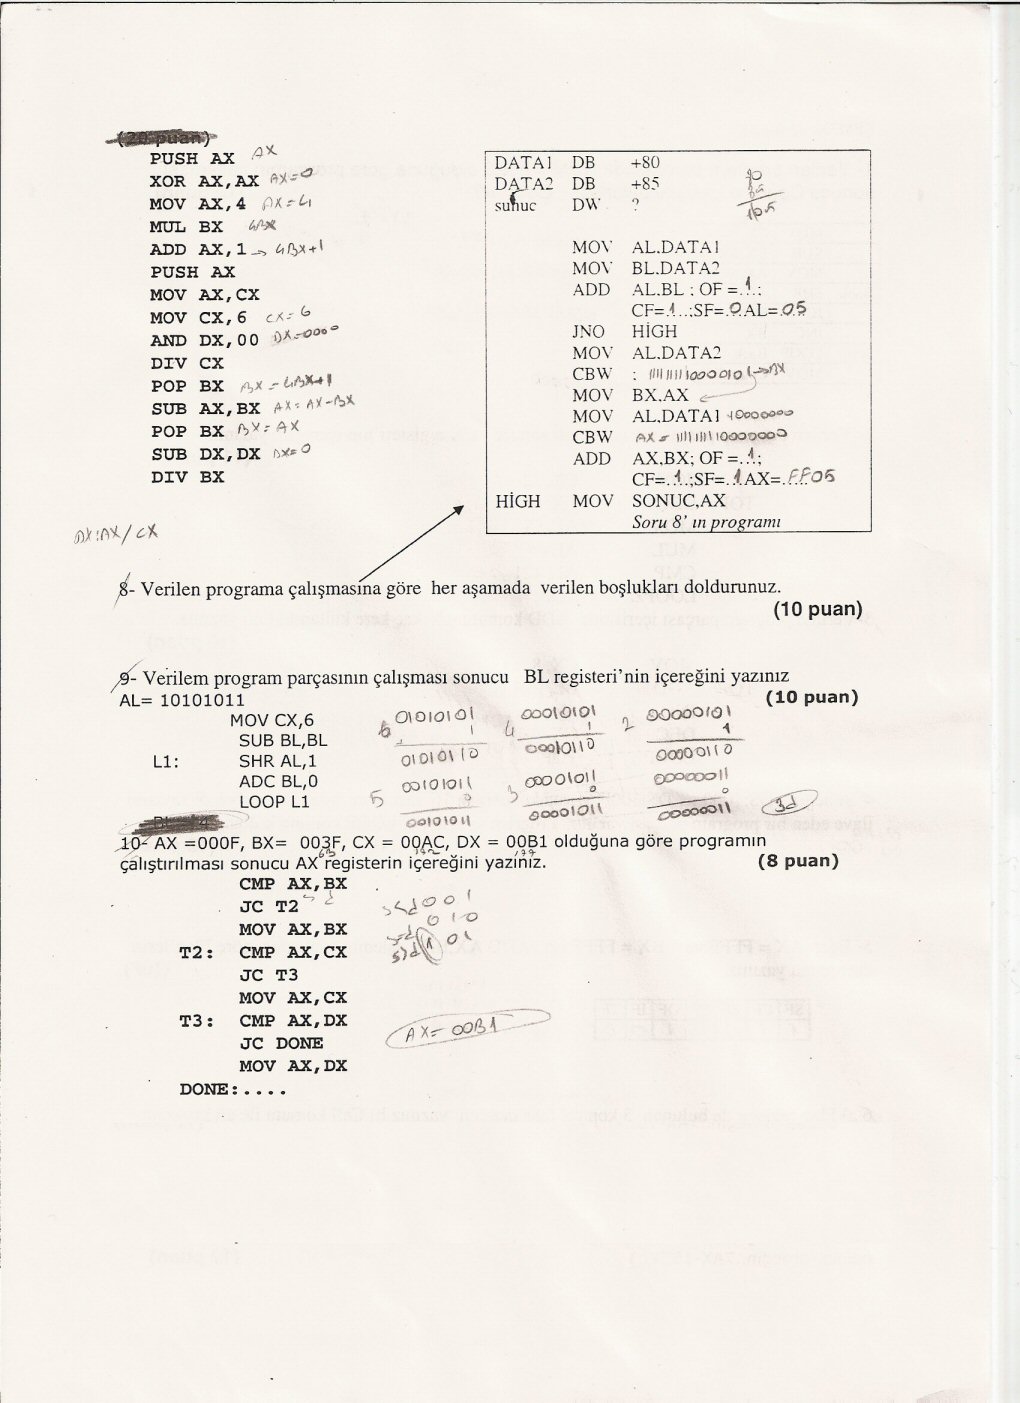 (20 puan)
PUSH AX AX
XOR AX,AX AX=0
MOV AX,4 AX=4
MUL BX 4BX
ADD AX,1 → 4BX+1
PUSH AX
MOV AX,CX
MOV CX,6 CX=6
AND DX,00 DX=0000
DIV CX
POP BX BX=4BX+1
SUB AX,BX AX=AX-BX
POP BX BX=AX
SUB DX,DX DX=0
DIV BX
DX:AX/CX
DATA1 DB +80
DATA2 DB +85
sunuc DW ?
80
85
105
MOV AL,DATA1
MOV BL,DATA2
ADD AL,BL ; OF =.1.;
CF=.1..;SF=.0.AL=.05
JNO HİGH
MOV AL,DATA2
CBW ; 1111111110000101 → AX
MOV BX,AX
MOV AL,DATA1 10000000
CBW AX = 1111111110000000
ADD AX,BX; OF =..1.;
CF=.1..;SF=.1.AX=.FF05
HİGH MOV SONUC,AX
Soru 8' ın programı
8- Verilen programa çalışmasına göre her aşamada verilen boşlukları doldurunuz.
(10 puan)
9- Verilem program parçasının çalışması sonucu BL registeri'nin içereğini yazınız
AL= 10101011 (10 puan)
MOV CX,6
SUB BL,BL
L1: SHR AL,1
ADC BL,0
LOOP L1
6 01010101
1
01010110
5 00101011
0
00101011
4 00010101
1
00010110
3 00001011
0
00001011
2 00000101
1
00000110
00000011
0
00000011
3d
10- AX =000F, BX= 003F, CX = 00AC, DX = 00B1 olduğuna göre programın
çalıştırılması sonucu AX registerin içereğini yazınız. (8 puan)
63 172 177
CMP AX,BX
JC T2
MOV AX,BX
T2: CMP AX,CX
JC T3
MOV AX,CX
T3: CMP AX,DX
JC DONE
MOV AX,DX
DONE:....
AX= 00B1